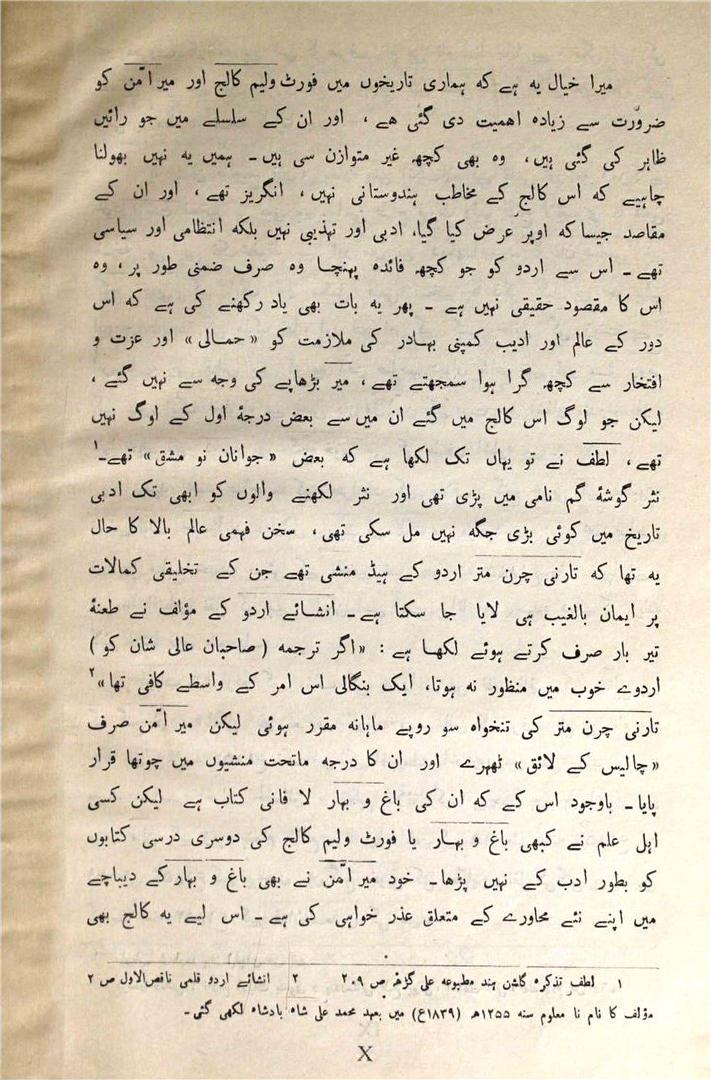 میرا خیال یہ ہے کہ ہماری تاریخوں میں فورٹ ولیم کالج اور میر امّن کو
ضرورت سے زیادہ اہمیت دی گئی ہے، اور ان کے سلسلے میں جو رائیں
ظاہر کی گئی ہیں، وہ بھی کچھ غیر متوازن سی ہیں۔ ہمیں یہ نہیں بھولنا
چاہیے کہ اس کالج کے مخاطب ہندوستانی نہیں، انگریز تھے، اور ان کے
مقاصد جیسا کہ اوپر عرض کیا گیا، ادبی اور تہذیبی نہیں بلکہ انتظامی اور سیاسی
تھے۔ اس سے اردو کو جو کچھ فائدہ پہنچا وہ صرف ضمنی طور پر، وہ
اس کا مقصود حقیقی نہیں ہے ۔ پھر یہ بات بھی یاد رکھنے کی ہے کہ اس
دور کے عالم اور ادیب کمپنی بہادر کی ملازمت کو «حمالی» اور عزت و
افتخار سے کچھ گرا ہوا سمجھتے تھے، میر بڑھاپے کی وجہ سے نہیں گئے،
لیکن جو لوگ اس کالج میں گئے ان میں سے بعض درجۂ اول کے لوگ نہیں
تھے، لطف نے تو یہاں تک لکھا ہے کہ بعض «جوانان نو مشق» تھے۔۱
نثر گوشۂ گم نامی میں پڑی تھی اور نثر لکھنے والوں کو ابھی تک ادبی
تاریخ میں کوئی بڑی جگہ نہیں مل سکی تھی، سخن فہمی عالم بالا کا حال
یہ تھا کہ تارنی چرن متر اردو کے ہیڈ منشی تھے جن کے تخلیقی کمالات
پر ایمان بالغیب ہی لایا جا سکتا ہے۔ انشائے اردو کے مؤلف نے طعنۂ
تیر بار صرف کرتے ہوئے لکھا ہے : «اگر ترجمہ (صاحبان عالی شان کو)
اردوے خوب میں منظور نہ ہوتا، ایک بنگالی اس امر کے واسطے کافی تھا»۲
تارنی چرن متر کی تنخواہ سو روپے ماہانہ مقرر ہوئی لیکن میر امّن صرف
«چالیس کے لائق» ٹھہرے اور ان کا درجہ ماتحت منشیوں میں چوتھا قرار
پایا۔ باوجود اس کے کہ ان کی باغ و بہار لا فانی کتاب ہے لیکن کسی
اہل علم نے کبھی باغ و بہار یا فورٹ ولیم کالج کی دوسری درسی کتابوں
کو بطور ادب کے نہیں پڑھا۔ خود میر امّن نے بھی باغ و بہار کے دیباچے
میں اپنے نئے محاورے کے متعلق عذر خواہی کی ہے۔ اس لیے یہ کالج بھی
۱ لطف تذکرہ گلشن ہند مطبوعہ علی گڑھ ص ۲۰۹ ۲ انشائے اردو قلمی ناقص الاول ص ۲
مؤلف کا نام نا معلوم سنہ ۱۲۵۵ھ (۱۸۳۹ع) میں بعہد محمد علی شاہ بادشاہ لکھی گئی۔
X